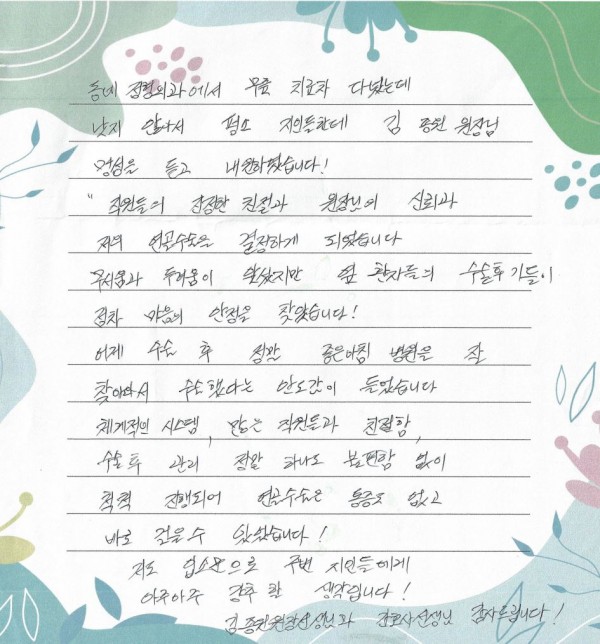 동네 정형외과에서 무릎 치료차 다녔는데
낫지 않아서 평소 지인들한테 김 종원 원장님
명성을 듣고 내원하였습니다!
"직원들의 친절한 친절과 원장님의 신뢰과
저의 연골수술을 결정하게 되었습니다
무서움과 두려움이 앞섰지만 옆 환자들의 수술후기들이
점차 마음의 안정을 찾았습니다!
어제 수술 후 정말 좋은아침 병원을 잘
찾아와서 수술했다는 안도감이 들었습니다
체계적인 시스템, 많은 직원들과 친절함,
수술 후 관리 정말 하나도 불편함 없이
척척 진행되어 연골수술은 통증도 없고
바로 걸을수 있었습니다!
저도 입소문으로 주변 지인들에게
아주아주 강추 할 생각입니다!
원장선생님과 간호사선생님 감사드립니다!